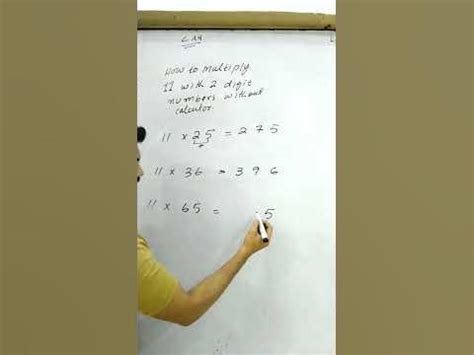 How to multiply
11 with 2 digit
numbers without
calcutor.
11 × 25 = 275
11 × 36 = 396
11 × 65 = 5